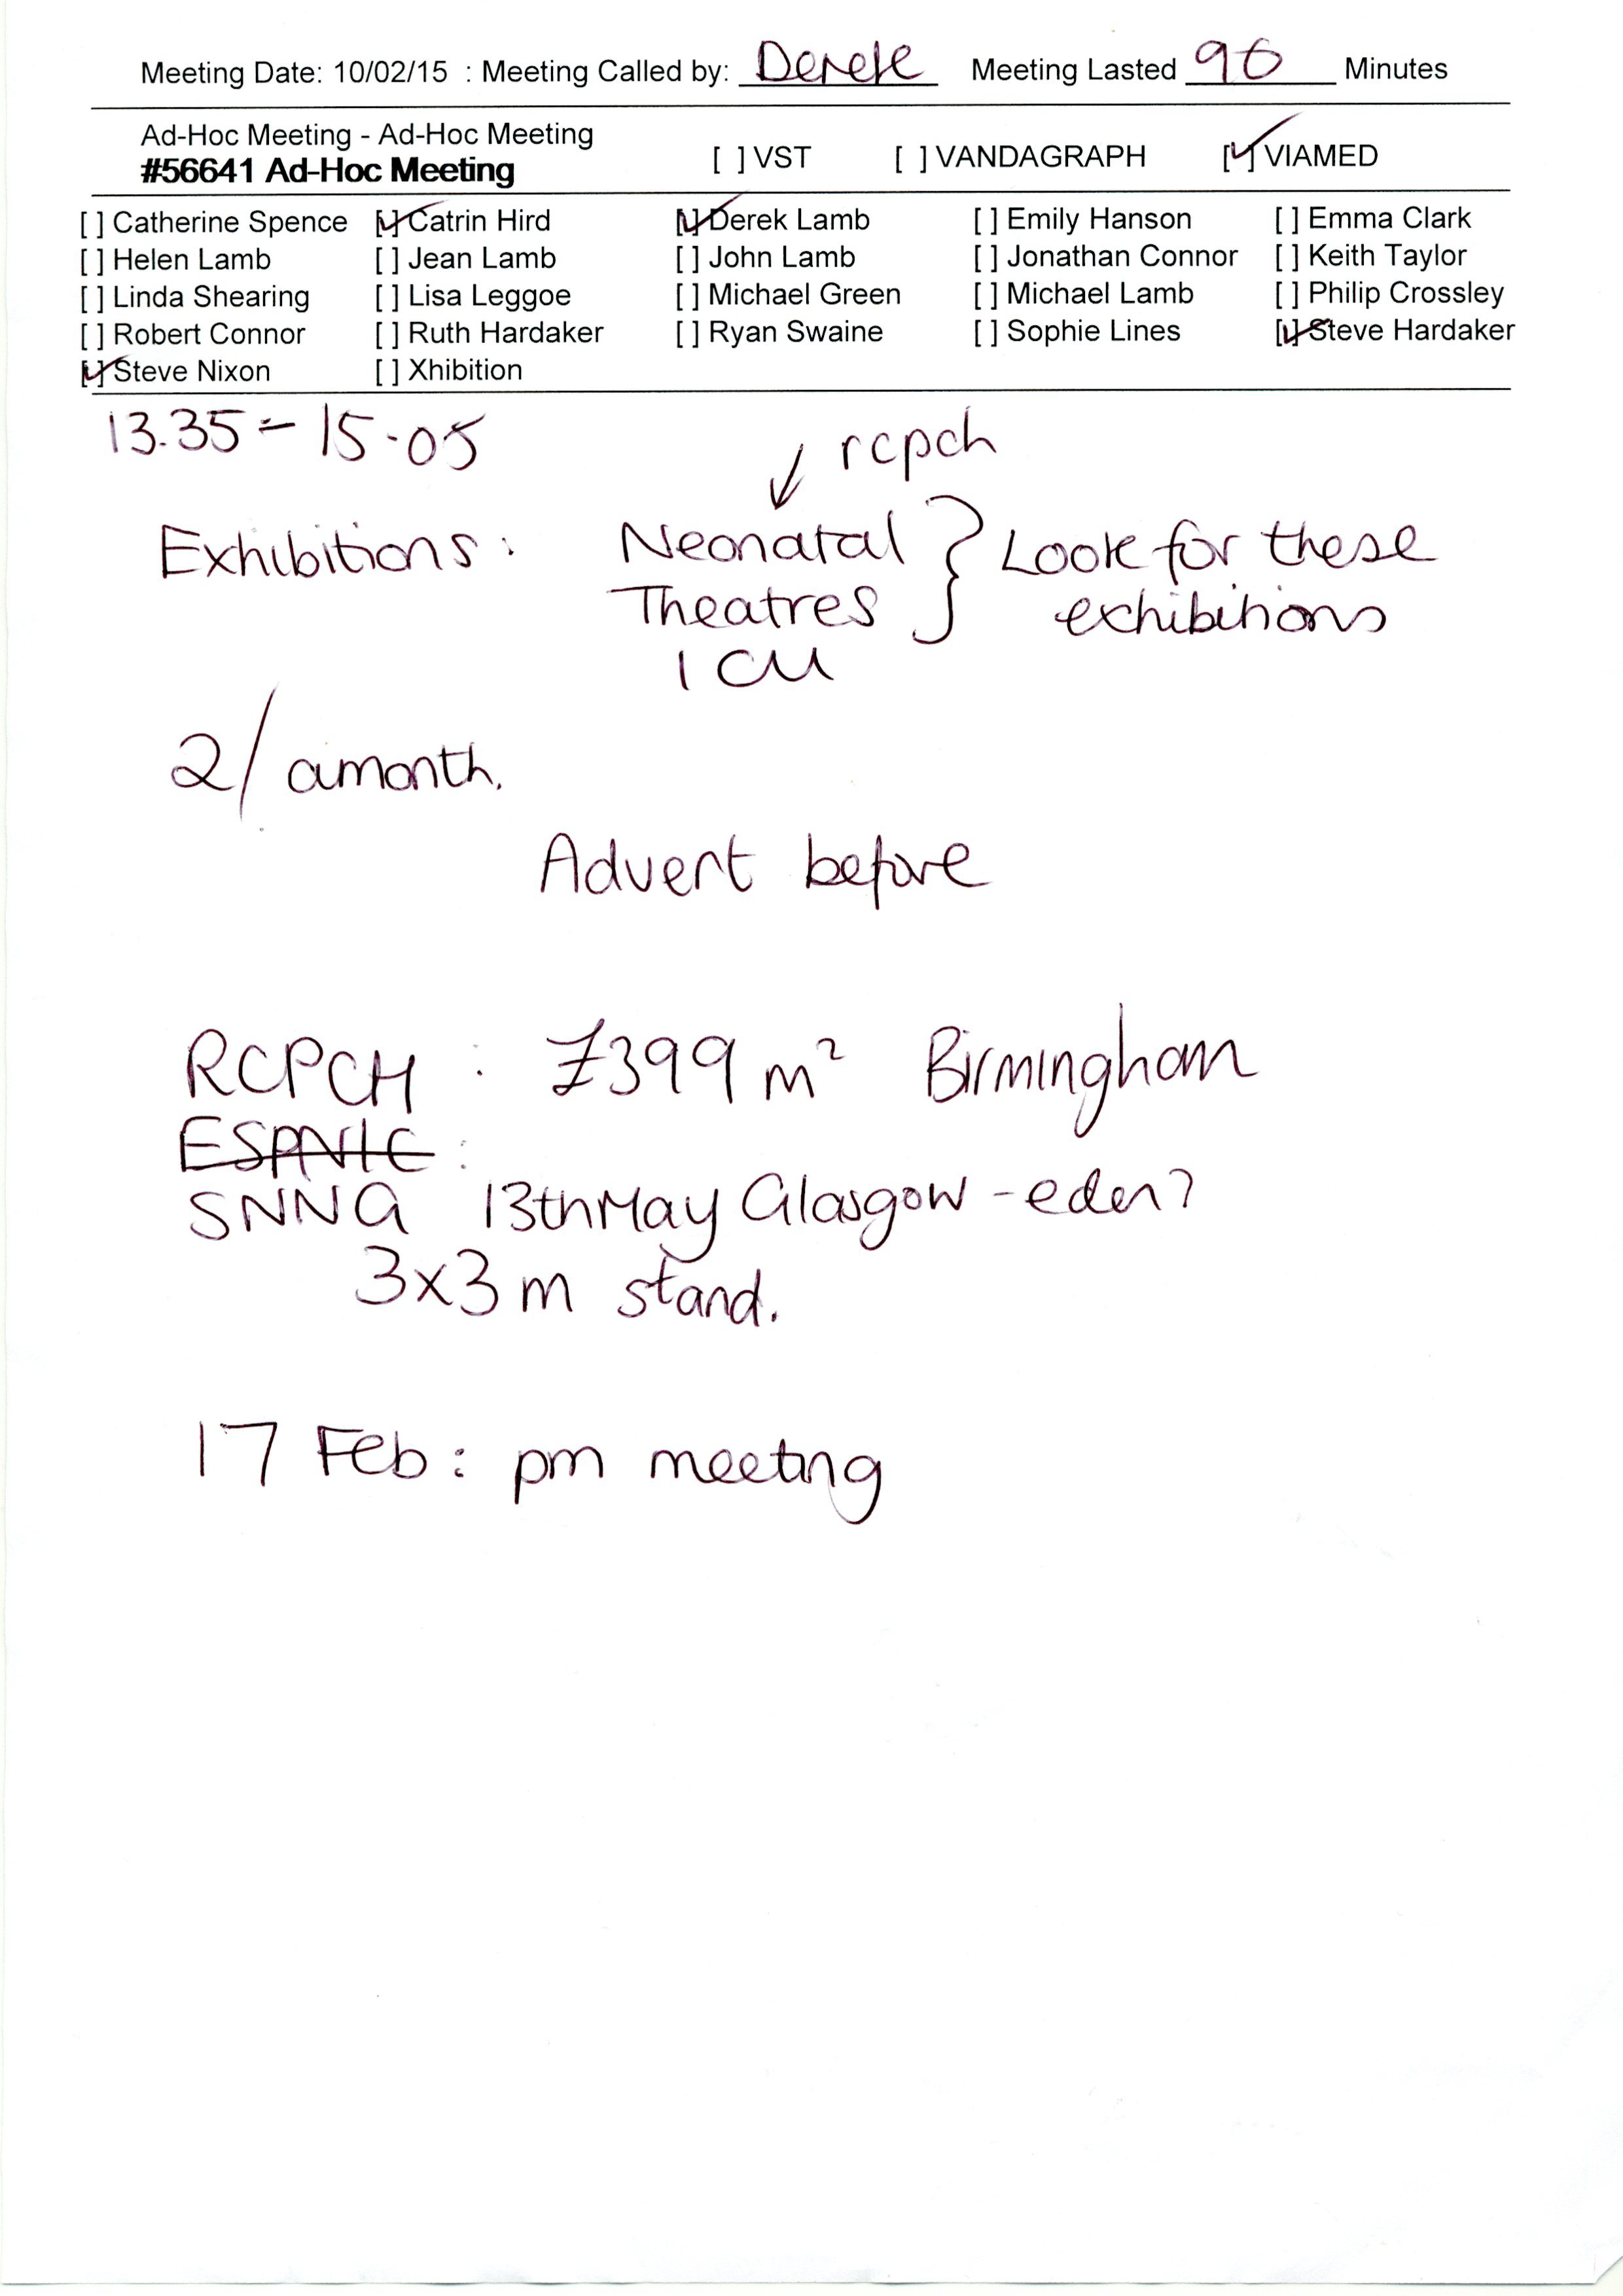 Meeting Date: 10/02/15 : Meeting Called by: Derek Meeting Lasted 90 Minutes
Ad-Hoc Meeting - Ad-Hoc Meeting
#56641 Ad-Hoc Meeting [ ] VST [ ] VANDAGRAPH [✓] VIAMED
[ ] Catherine Spence [✓] Catrin Hird [✓] Derek Lamb [ ] Emily Hanson [ ] Emma Clark
[ ] Helen Lamb [ ] Jean Lamb [ ] John Lamb [ ] Jonathan Connor [ ] Keith Taylor
[ ] Linda Shearing [ ] Lisa Leggoe [ ] Michael Green [ ] Michael Lamb [ ] Philip Crossley
[ ] Robert Connor [ ] Ruth Hardaker [ ] Ryan Swaine [ ] Sophie Lines [✓] Steve Hardaker
[✓] Steve Nixon [ ] Xhibition
13.35 - 15.05
↓ rcpch
Exhibitions: Neonatal } Look for these
Theatres exhibitions
ICU
2/ a month.
Advert before
RCPCH : £399 m² Birmingham
ESPNIC :
SNNG 13th May Glasgow - eden?
3x3 m stand.
17 Feb: pm meeting